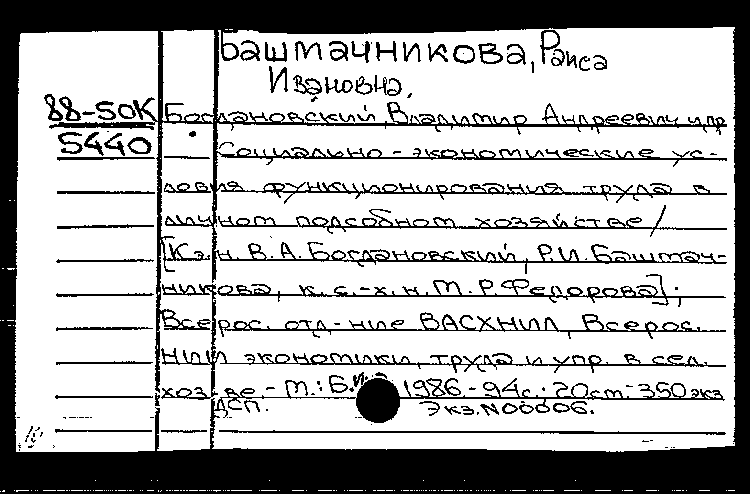 Башмачникова, Раиса
Ивановна.
88-50К Богдановский, Владимир Андреевич и др
5440 Социально-экономические ус-
ловия функционирования труда в
личном подсобном хозяйстве/
[К.э.н. В.А. Богдановский, Р.И. Башмач-
никова, к.с.-х.н. М.Р. Федорова];
Всерос. отд-ние ВАСХНИЛ, Всерос.
НИИ экономики, труда и упр. в сел.
хоз-ве.- М.: Б.и. 1986.- 94с.; 20см.- 350экз
ДСП. Экз.N00006.